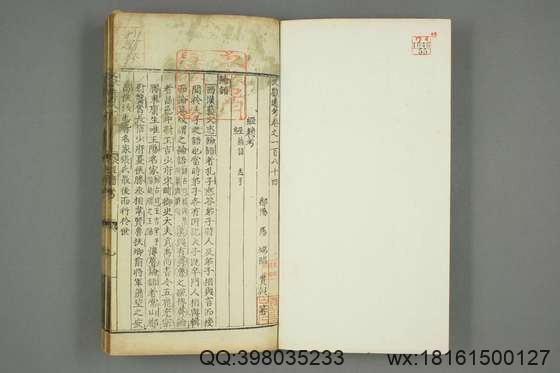 文獻通考卷之一百八十四
鄱陽 馬 端臨 貴與 著
經籍考
經 論語 孟子
論語
西漢藝文志論語者孔子應答弟子時人及弟子相與言而接
聞於夫子之語也當時弟子各有所記夫子既卒門人相與輯
而論篹故謂之論語漢興有齊魯之說傳齊論
者昌邑中尉王吉少府宋畸御史大夫貢禹尚書令五鹿充宗
膠東庸生唯王陽名家傳魯論語者常山都
尉龔奮長信少府夏侯勝丞相韋賢魯扶卿前將軍蕭望之安
昌侯張禹皆名家張氏最後而行於世
QQ:398035233
wx:18161500127